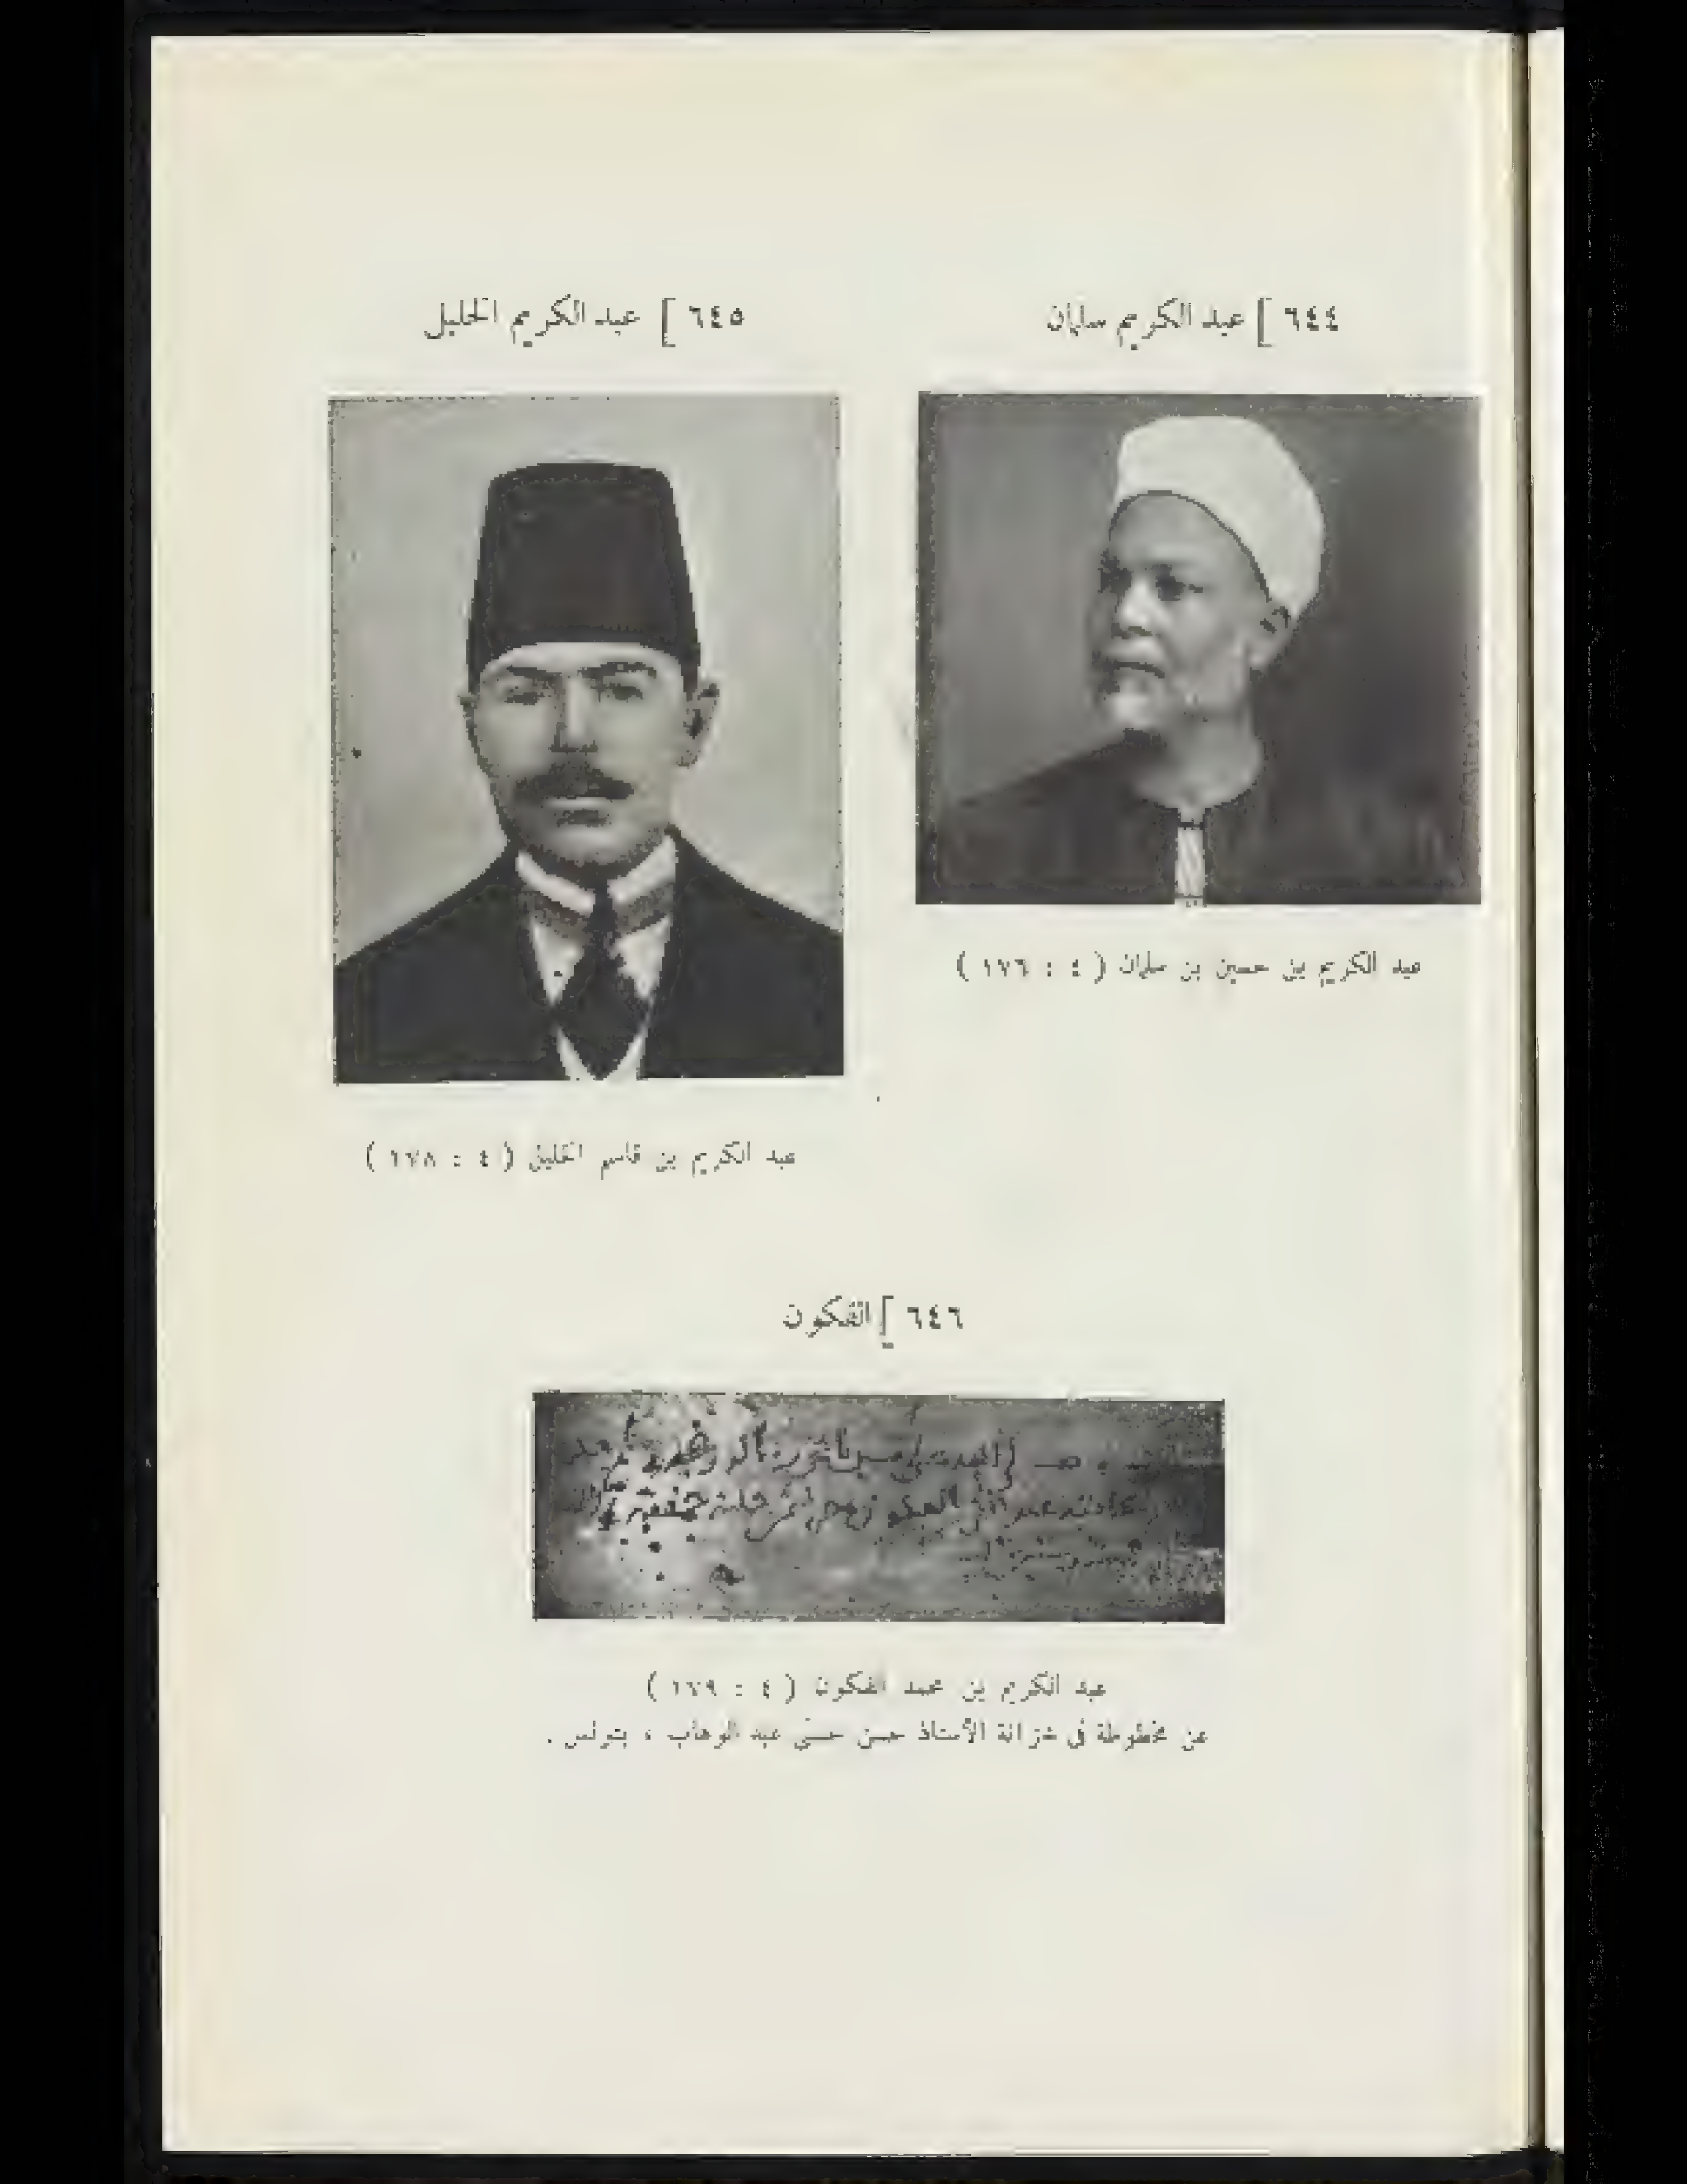 ٦٤٤ ] عبد الكريم سلمان
عبد الكريم بن حسين بن سلمان ( ٤ : ١٧٦ )
٦٤٥ ] عبد الكريم الخليل
عبد الكريم بن قاسم الخليل ( ٤ : ١٧٨ )
٦٤٦ ] الفكون
عبد الكريم بن محمد الفكون ( ٤ : ١٧٩ )
عن مخطوطة في خزانة الأستاذ حسن حسني عبد الوهاب ، بتونس .